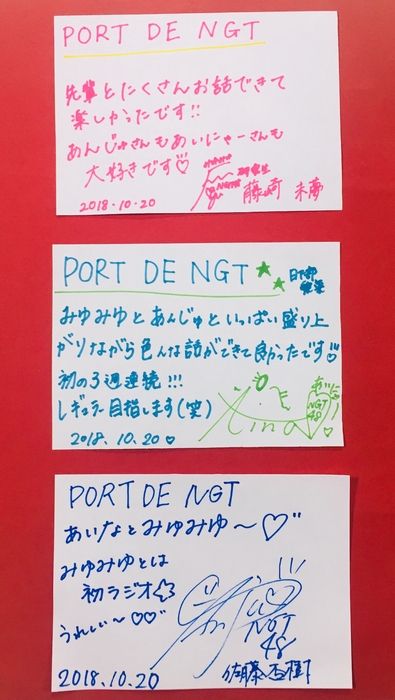 PORT DE NGT
先輩とたくさんお話できて
楽しかったです!!
あんじゅさんもあいにゃーさんも
大好きです♡
2018.10.20
研究生
藤崎 未夢
PORT DE NGT
みゆみゆとあんじゅといっぱい盛り上
がりながら色んな話ができて良かったです♡
初の3週連続!!!
レギュラー目指します(笑)
2018.10.20♡
NGT
48
PORT DE NGT
あいなとみゆみゆ〜♡
みゆみゆとは
初ラジオ
うれしい〜♡♡
NGT
48
2018.10.20
佐藤杏樹